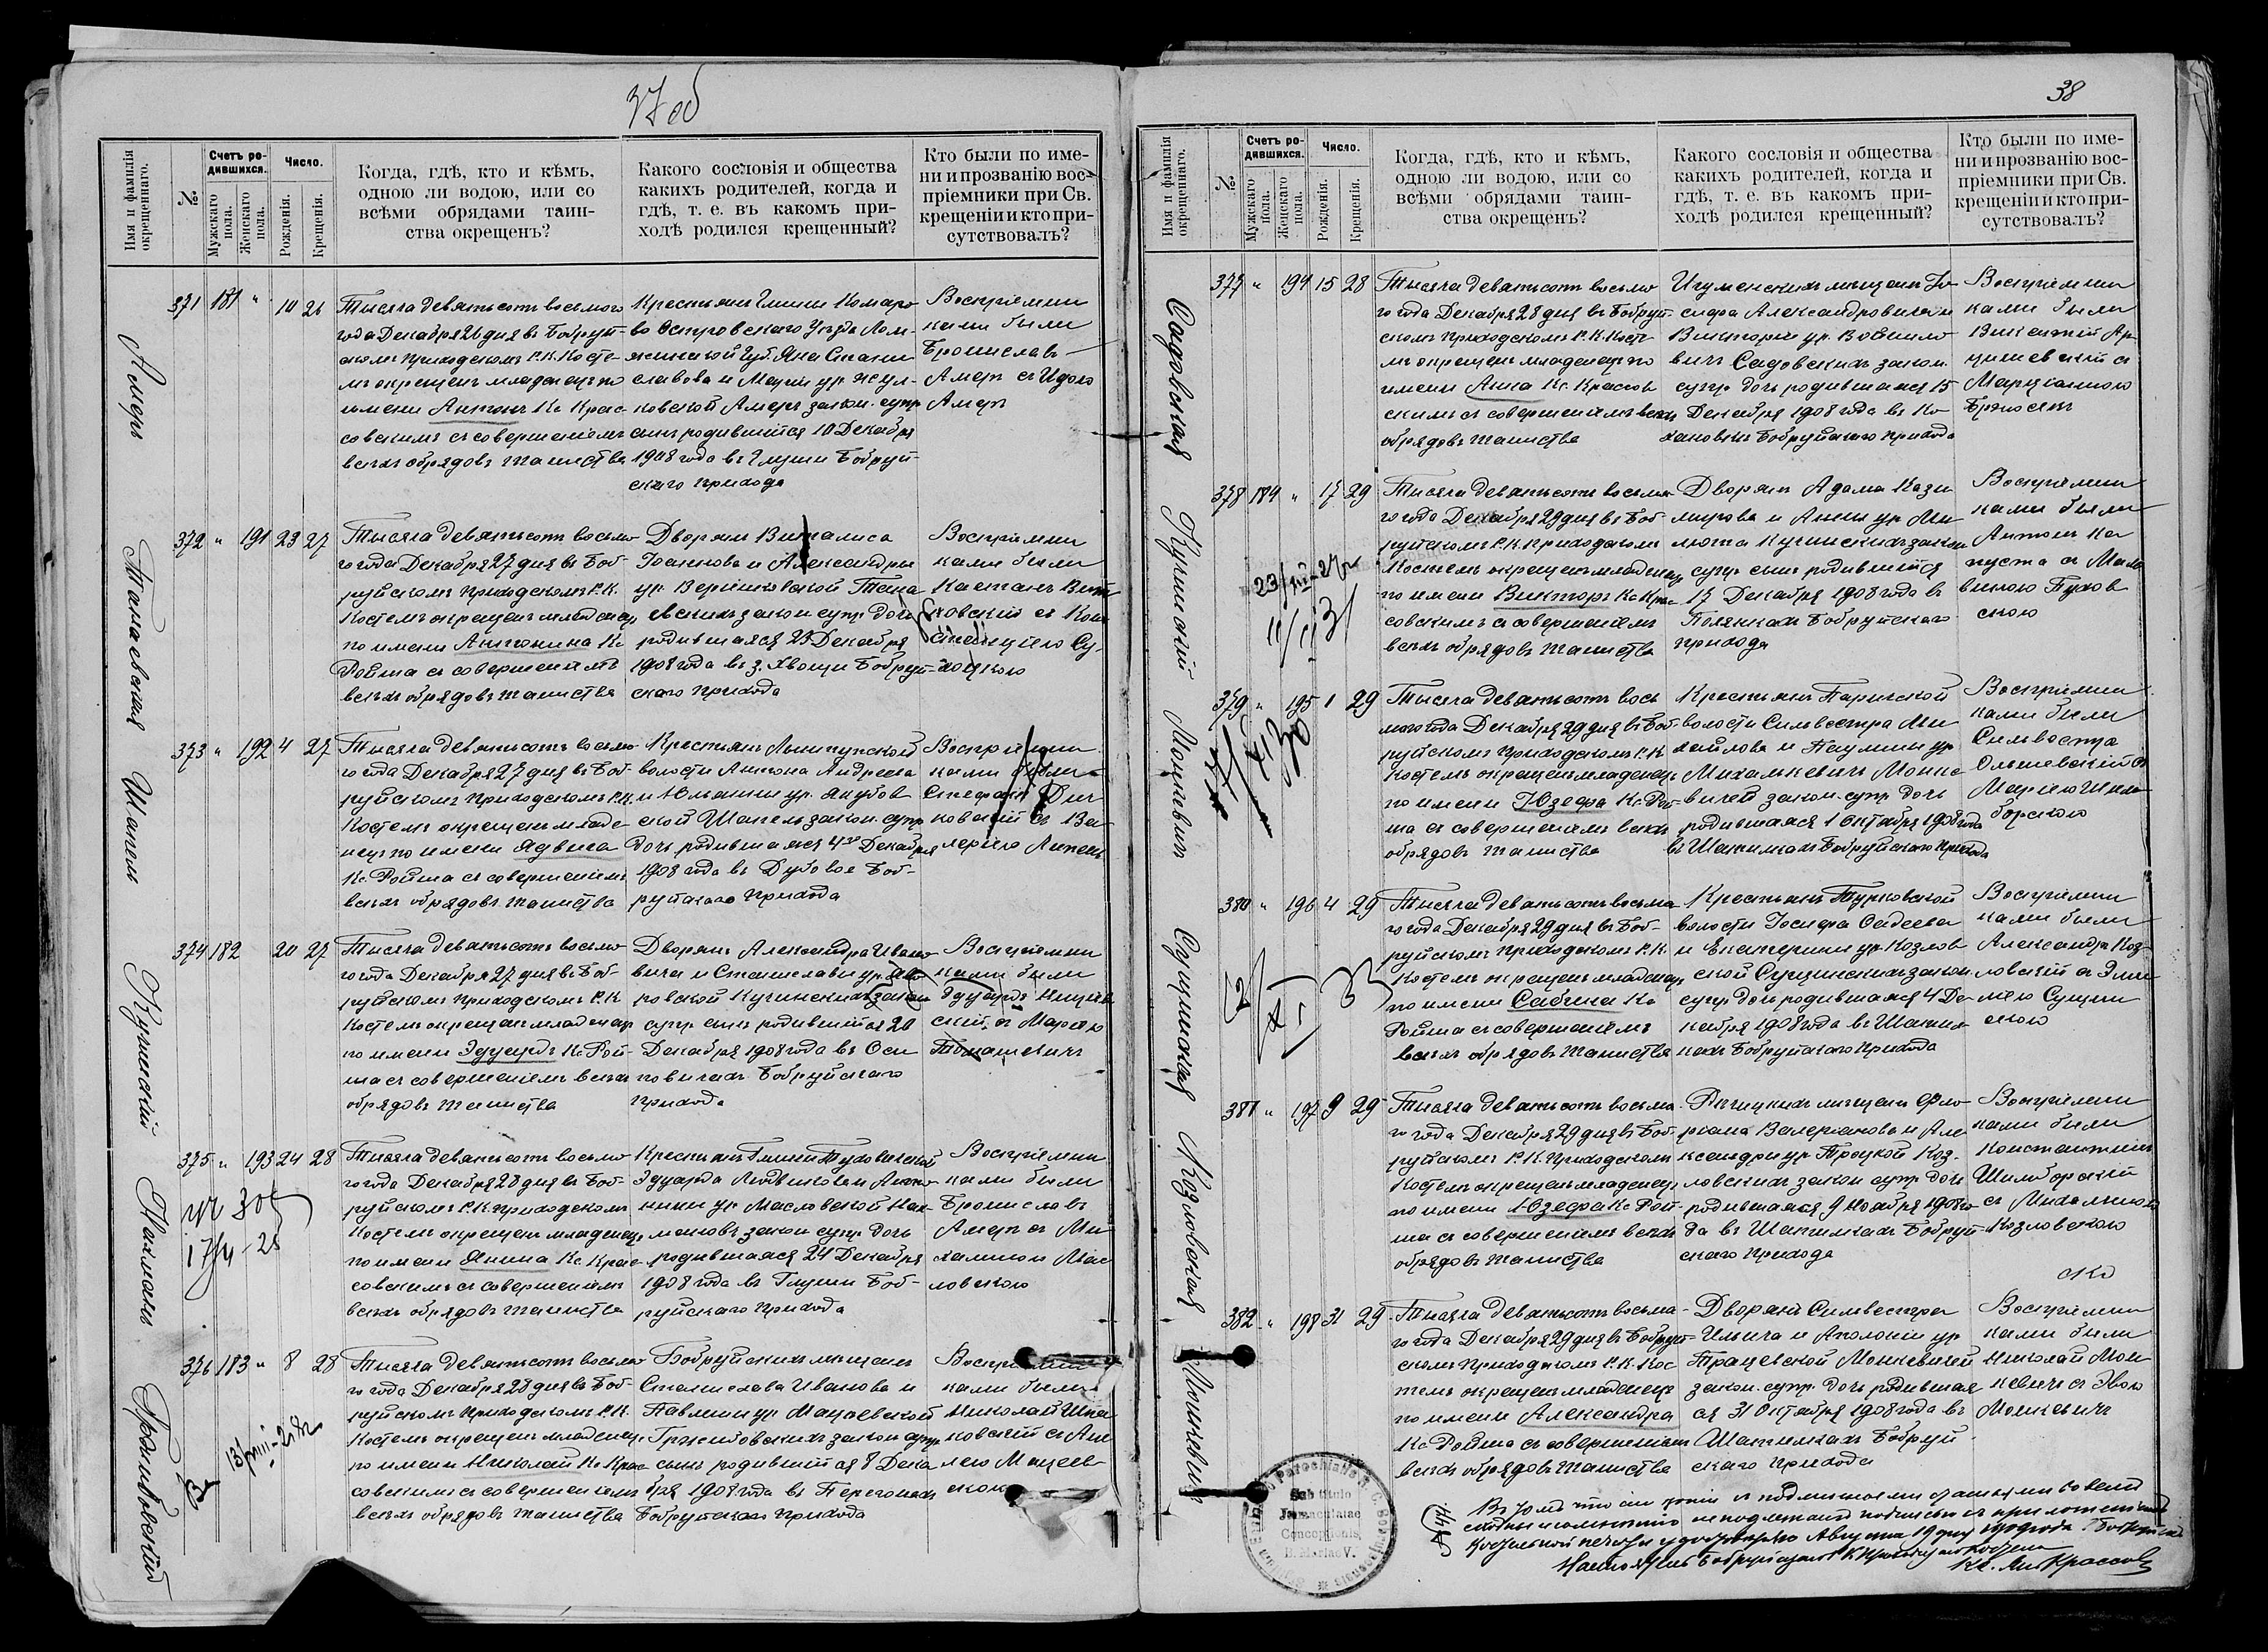 37 об
Имя и фамилія окрещеннаго.
№
Счетъ родившихся.
Мужскаго пола.
Женскаго пола.
Число.
Рожденія.
Крещенія.
Когда, гдѣ, кто и кѣмъ,
одною ли водою, или со
всѣми обрядами таин-
ства окрещенъ?
Какого сословія и общества
какихъ родителей, когда и
гдѣ, т. е. въ какомъ при-
ходѣ родился крещенный?
Кто были по име-
ни и прозванію вос-
пріемники при Св.
крещеніи и кто при-
сутствовалъ?
Амеръ
371 181 " 10 26
Тысяча девятьсотъ восьмого
года Декабря 26 дня въ Бобруй-
скомъ приходскомъ Р.К. Косте-
лѣ окрещенъ младенецъ по
имени Антонъ Кс. Крас-
совскимъ съ совершеніемъ
всѣхъ обрядовъ таинства
Крестьянъ Гмины Комаро
во Островского Уѣзда Лом-
жинской Губ. Яна Стани
славова и Маріи ур. Жул-
ковской Амеръ закон. супр.
сынъ родившійся 10 Декабря
1908 года въ Глуши Бобруй-
скаго прихода
Воспріемни
ками были
Брониславъ
Амеръ съ
Амеръ
Танаевская
372 " 191 23 27
Тысяча девятьсотъ восьмо
го года Декабря 27 дня въ Боб-
руйскомъ приходскомъ Р.К.
Костелѣ окрещенъ младенецъ
по имени Антонина Кс.
Ройша съ совершеніемъ
всѣхъ обрядовъ таинства
Дворянъ Виталиса
Іоаннова и Александры
ур. Танa
евскихъ закон. супр. дочь
родившаяся 23 Декабря
1908 года въ з. Хвощи Бобруй-
скаго прихода
Воспріемни
ками были
Каетанъ Вит
ковскій съ Кон
станціею Су-
Шапель
373 " 192 4 27
Тысяча девятьсотъ восьмо
го года Декабря 27 дня въ Боб-
руйскомъ приходскомъ Р.К.
Костелѣ окрещенъ младе
нецъ по имени Ядвига
Кс. Ройша съ совершеніемъ
всѣхъ обрядовъ таинства
Крестьянъ
волости Антона Андреева
и Юльянны ур. Якубов
ской Шапель закон. супр.
дочь родившаяся 4го Декабря
1908 года въ Дубовое Боб-
руйскаго прихода
Воспріемни
ками были
Стефанъ
ковскій съ Ва-
леріею
Кучинскій
374 182 20 27
Тысяча девятьсотъ восьмо
го года Декабря 27 дня въ Боб-
руйскомъ приходскомъ Р.К.
Костелѣ окрещенъ младенецъ
по имени Эдуардъ Кс. Рой-
ша съ совершеніемъ всѣхъ
обрядовъ таинства
Дворянъ Александра Ивано
вича и Станиславы ур.
ровской Кучинскихъ закон.
супр. сынъ родившійся 20
Декабря 1908 года въ Оси
повичахъ Бобруйскаго
прихода
Воспріемни
ками были
Эдуардъ
скій съ Маріею
Томашевичъ
Нахманъ
375 " 193 24 28
Тысяча девятьсотъ восьмо
го года Декабря 28 дня въ Боб-
руйскомъ Р.К. приходскомъ
Костелѣ окрещенъ младенецъ
по имени Янина Кс. Крас-
совскимъ съ совершеніемъ
всѣхъ обрядовъ таинства
Крестьянъ Гмины
Эдуарда Людвикова и Анто
нины ур. Масловской Нах-
мановъ закон. супр. дочь
родившаяся 24 Декабря
1908 года въ Глуши Боб-
руйскаго прихода
Воспріемни
ками были
Брониславъ
Амеръ съ Ми
халиною Мас
ловскою
Гржибовскій
376 183 " 8 28
Тысяча девятьсотъ восьмо
го года Декабря 28 дня въ Боб-
руйскомъ приходскомъ Р.К.
Костелѣ окрещенъ младенецъ
по имени Николай Кс. Крас-
совскимъ съ совершеніемъ
всѣхъ обрядовъ таинства
Бобруйскихъ мѣщанъ
Станислава Иванова и
Павлины ур. Мацеевской
Гржибовскихъ закон. супр.
сынъ родившійся 8 Дека
бря 1908 года въ
Бобруйскаго прихода
Воспріемни
ками были
Николай
ковскій съ
Мацеев-
скою
38
Имя и фамилія окрещеннаго.
№
Счетъ родившихся.
Мужскаго пола.
Женскаго пола.
Число.
Рожденія.
Крещенія.
Когда, гдѣ, кто и кѣмъ,
одною ли водою, или со
всѣми обрядами таин-
ства окрещенъ?
Какого сословія и общества
какихъ родителей, когда и
гдѣ, т. е. въ какомъ при-
ходѣ родился крещенный?
Кто были по име-
ни и прозванію вос-
пріемники при Св.
крещеніи и кто при-
сутствовалъ?
Садовская
377 " 194 15 28
Тысяча девятьсотъ восьмо
го года Декабря 28 дня въ Бобруй-
скомъ приходскомъ Р.К. Косте-
лѣ окрещенъ младенецъ по
имени Анна Кс. Крассов
скимъ съ совершеніемъ всѣхъ
обрядовъ таинства
Игуменскихъ мѣщанъ Іо
сифа Александровича и
Викторіи ур.
вичъ Садовскихъ закон.
супр. дочь родившаяся 15
Декабря 1908 года въ Ко
хановкѣ Бобруйскаго прихода
Воспріемни
ками были
Викентій Ар
цишевскій съ
Марціанною
Кучинскій
378 184 " 17 29
Тысяча девятьсотъ восьмо
го года Декабря 29 дня въ Боб-
руйскомъ Р.К. приходскомъ
Костелѣ окрещенъ младенецъ
по имени Викторъ Кс. Крас-
совскимъ съ совершеніемъ
всѣхъ обрядовъ таинства
Дворянъ Адама Кази
мирова и Анны ур.
Кучинскихъ закон.
супр. сынъ родившійся
17 Декабря 1908 года въ
Полянкахъ Бобруйскаго
прихода
Воспріемни
ками были
Антонъ Ка
пуста съ Маль
виною
скою
Монкевичъ
379 " 195 1 29
Тысяча девятьсотъ вось
мого года Декабря 29 дня въ Боб-
руйскомъ приходскомъ Р.К.
Костелѣ окрещенъ младенецъ
по имени Юзефа Кс. Рой-
ша съ совершеніемъ всѣхъ
обрядовъ таинства
Крестьянъ Паричской
волости Сильвестра Ми
хайлова и Паулины ур.
Михалькевичъ Монке
вичей закон. супр. дочь
родившаяся 1 Октября 1908 года
въ Шатилкахъ Бобруйскаго прихода
Воспріемни
ками были
Сильвестръ
Ольшевскій съ
Маріею Шим
борскою
Сущинская
380 " 196 4 29
Тысяча девятьсотъ восьмо
го года Декабря 29 дня въ Боб-
руйскомъ приходскомъ Р.К.
Костелѣ окрещенъ младенецъ
по имени Сабина Кс.
Ройша съ совершеніемъ
всѣхъ обрядовъ таинства
Крестьянъ Турковской
волости Іосифа Фадеева
и Екатерины ур. Козлов
ской Сущинскихъ закон.
супр. дочь родившаяся 4 Де-
кабря 1908 года въ Шатил
кахъ Бобруйскаго прихода
Воспріемни
ками были
Александръ Коз-
ловскій съ Эми
ліею Сущин
скою
Козловская
381 " 197 9 29
Тысяча девятьсотъ восьмо
го года Декабря 29 дня въ Боб-
руйскомъ Р.К. приходскомъ
Костелѣ окрещенъ младенецъ
по имени Юзефа Кс. Рой-
ша съ совершеніемъ всѣхъ
обрядовъ таинства
Рѣчицкихъ мѣщанъ Фло
ріана Валеріанова и Але
ксандры ур. Троцкой Коз-
ловскихъ закон. супр. дочь
родившаяся 9 Ноября 1908 го
да въ Шатилкахъ Бобруй-
скаго прихода
Воспріемни
ками были
Константинъ
Шимборскій
съ Михалиною
Козловскою
Монкевичъ
382 " 198 31 29
Тысяча девятьсотъ восьмо
го года Декабря 29 дня въ Бобруй-
скомъ приходскомъ Р.К. Кос
телѣ окрещенъ младенецъ
по имени Александра
Кс. Ройша съ совершеніемъ
всѣхъ обрядовъ таинства
Дворянъ Сильвестра
Ильича и Аполоніи ур.
Трацевской Монкевичей
закон. супр. дочь родившая
ся 31 Октября 1908 года въ
Шатилкахъ Бобруй
скаго прихода
Воспріемни
ками были
Николай Мон
кевичъ съ Эвою
Монкевичъ
Въ томъ что сіи копіи съ подлинными
подписью съ приложеніемъ
костельной печати удостовѣряю Августа 19 дня 1909 года г. Бобруйскъ
Настоятель Бобруйскаго Р.К. Приходскаго Костела
Sub titulo
Immaculatae
Conceptionis,
B. Mariae V.